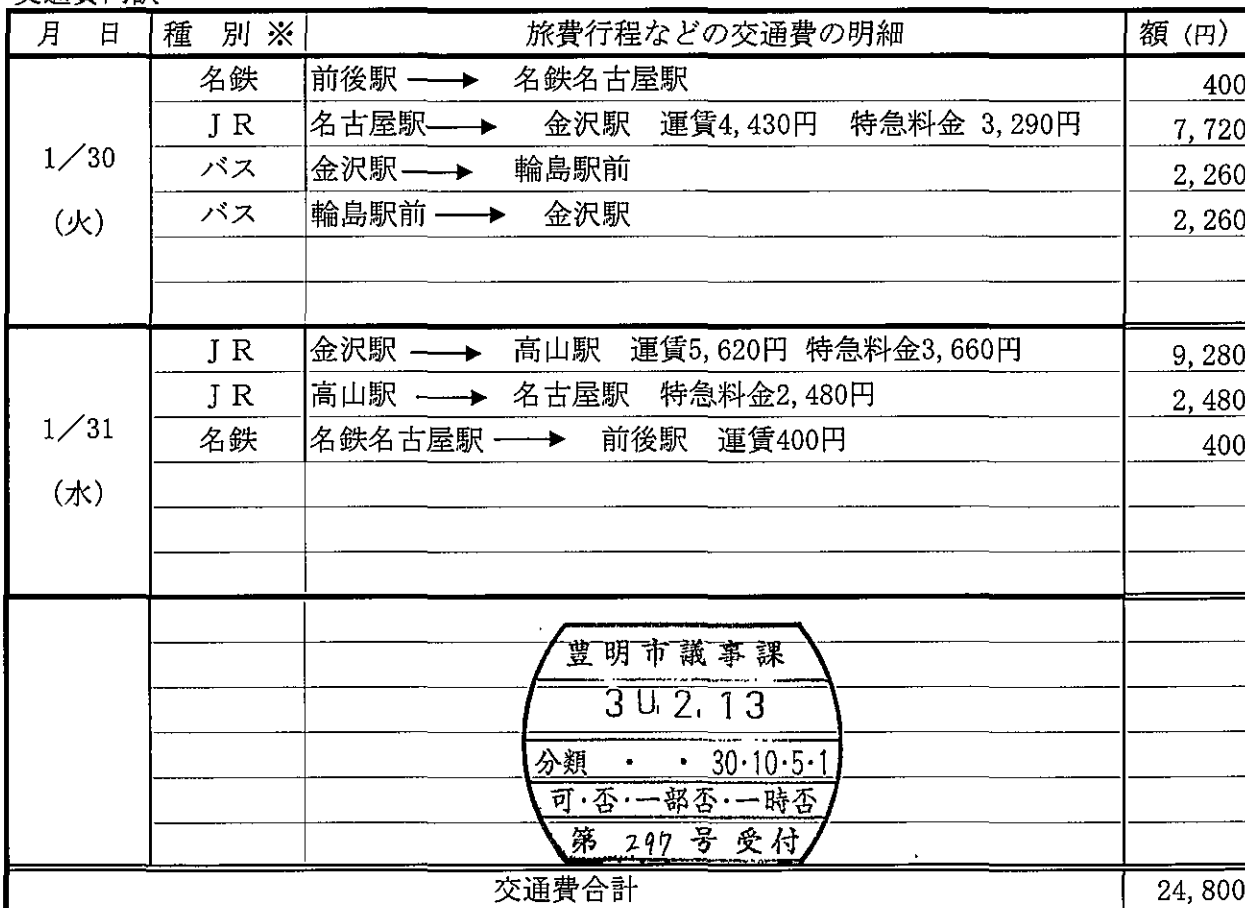 月 日 種 別 ※ 旅費行程などの交通費の明細 額 (円)
1/30 (火)
名鉄 前後駅 → 名鉄名古屋駅 400
JR 名古屋駅 → 金沢駅 運賃4,430円 特急料金 3,290円 7,720
バス 金沢駅 → 輪島駅前 2,260
バス 輪島駅前 → 金沢駅 2,260
1/31 (水)
JR 金沢駅 → 高山駅 運賃5,620円 特急料金3,660円 9,280
JR 高山駅 → 名古屋駅 特急料金2,480円 2,480
名鉄 名鉄名古屋駅 → 前後駅 運賃400円 400
豊明市議事課
30.2.13
分類 ・ ・ 30・10・5・1
可・否・一部否・一時否
第 297 号 受付
交通費合計 24,800